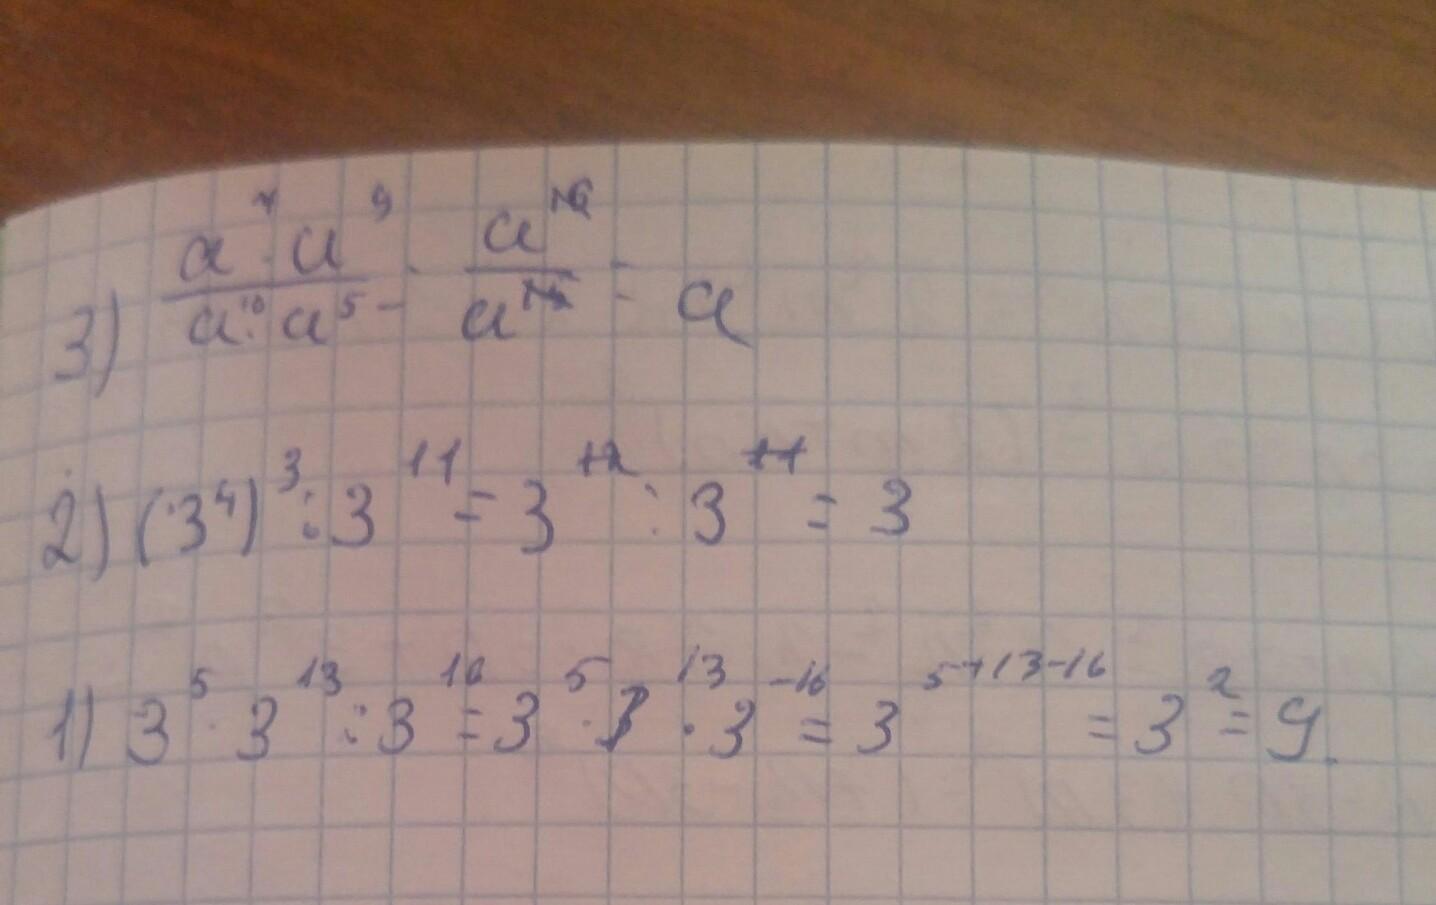 3) a⁷·a⁹/a¹⁰·a⁵ = a¹⁶/a¹⁵ = a
2) (3⁴)³:3¹¹=3¹²:3¹¹=3
1) 3⁵·3¹³:3¹⁶=3⁵·3¹³·3⁻¹⁶=3⁵⁺¹³⁻¹⁶=3²=9.